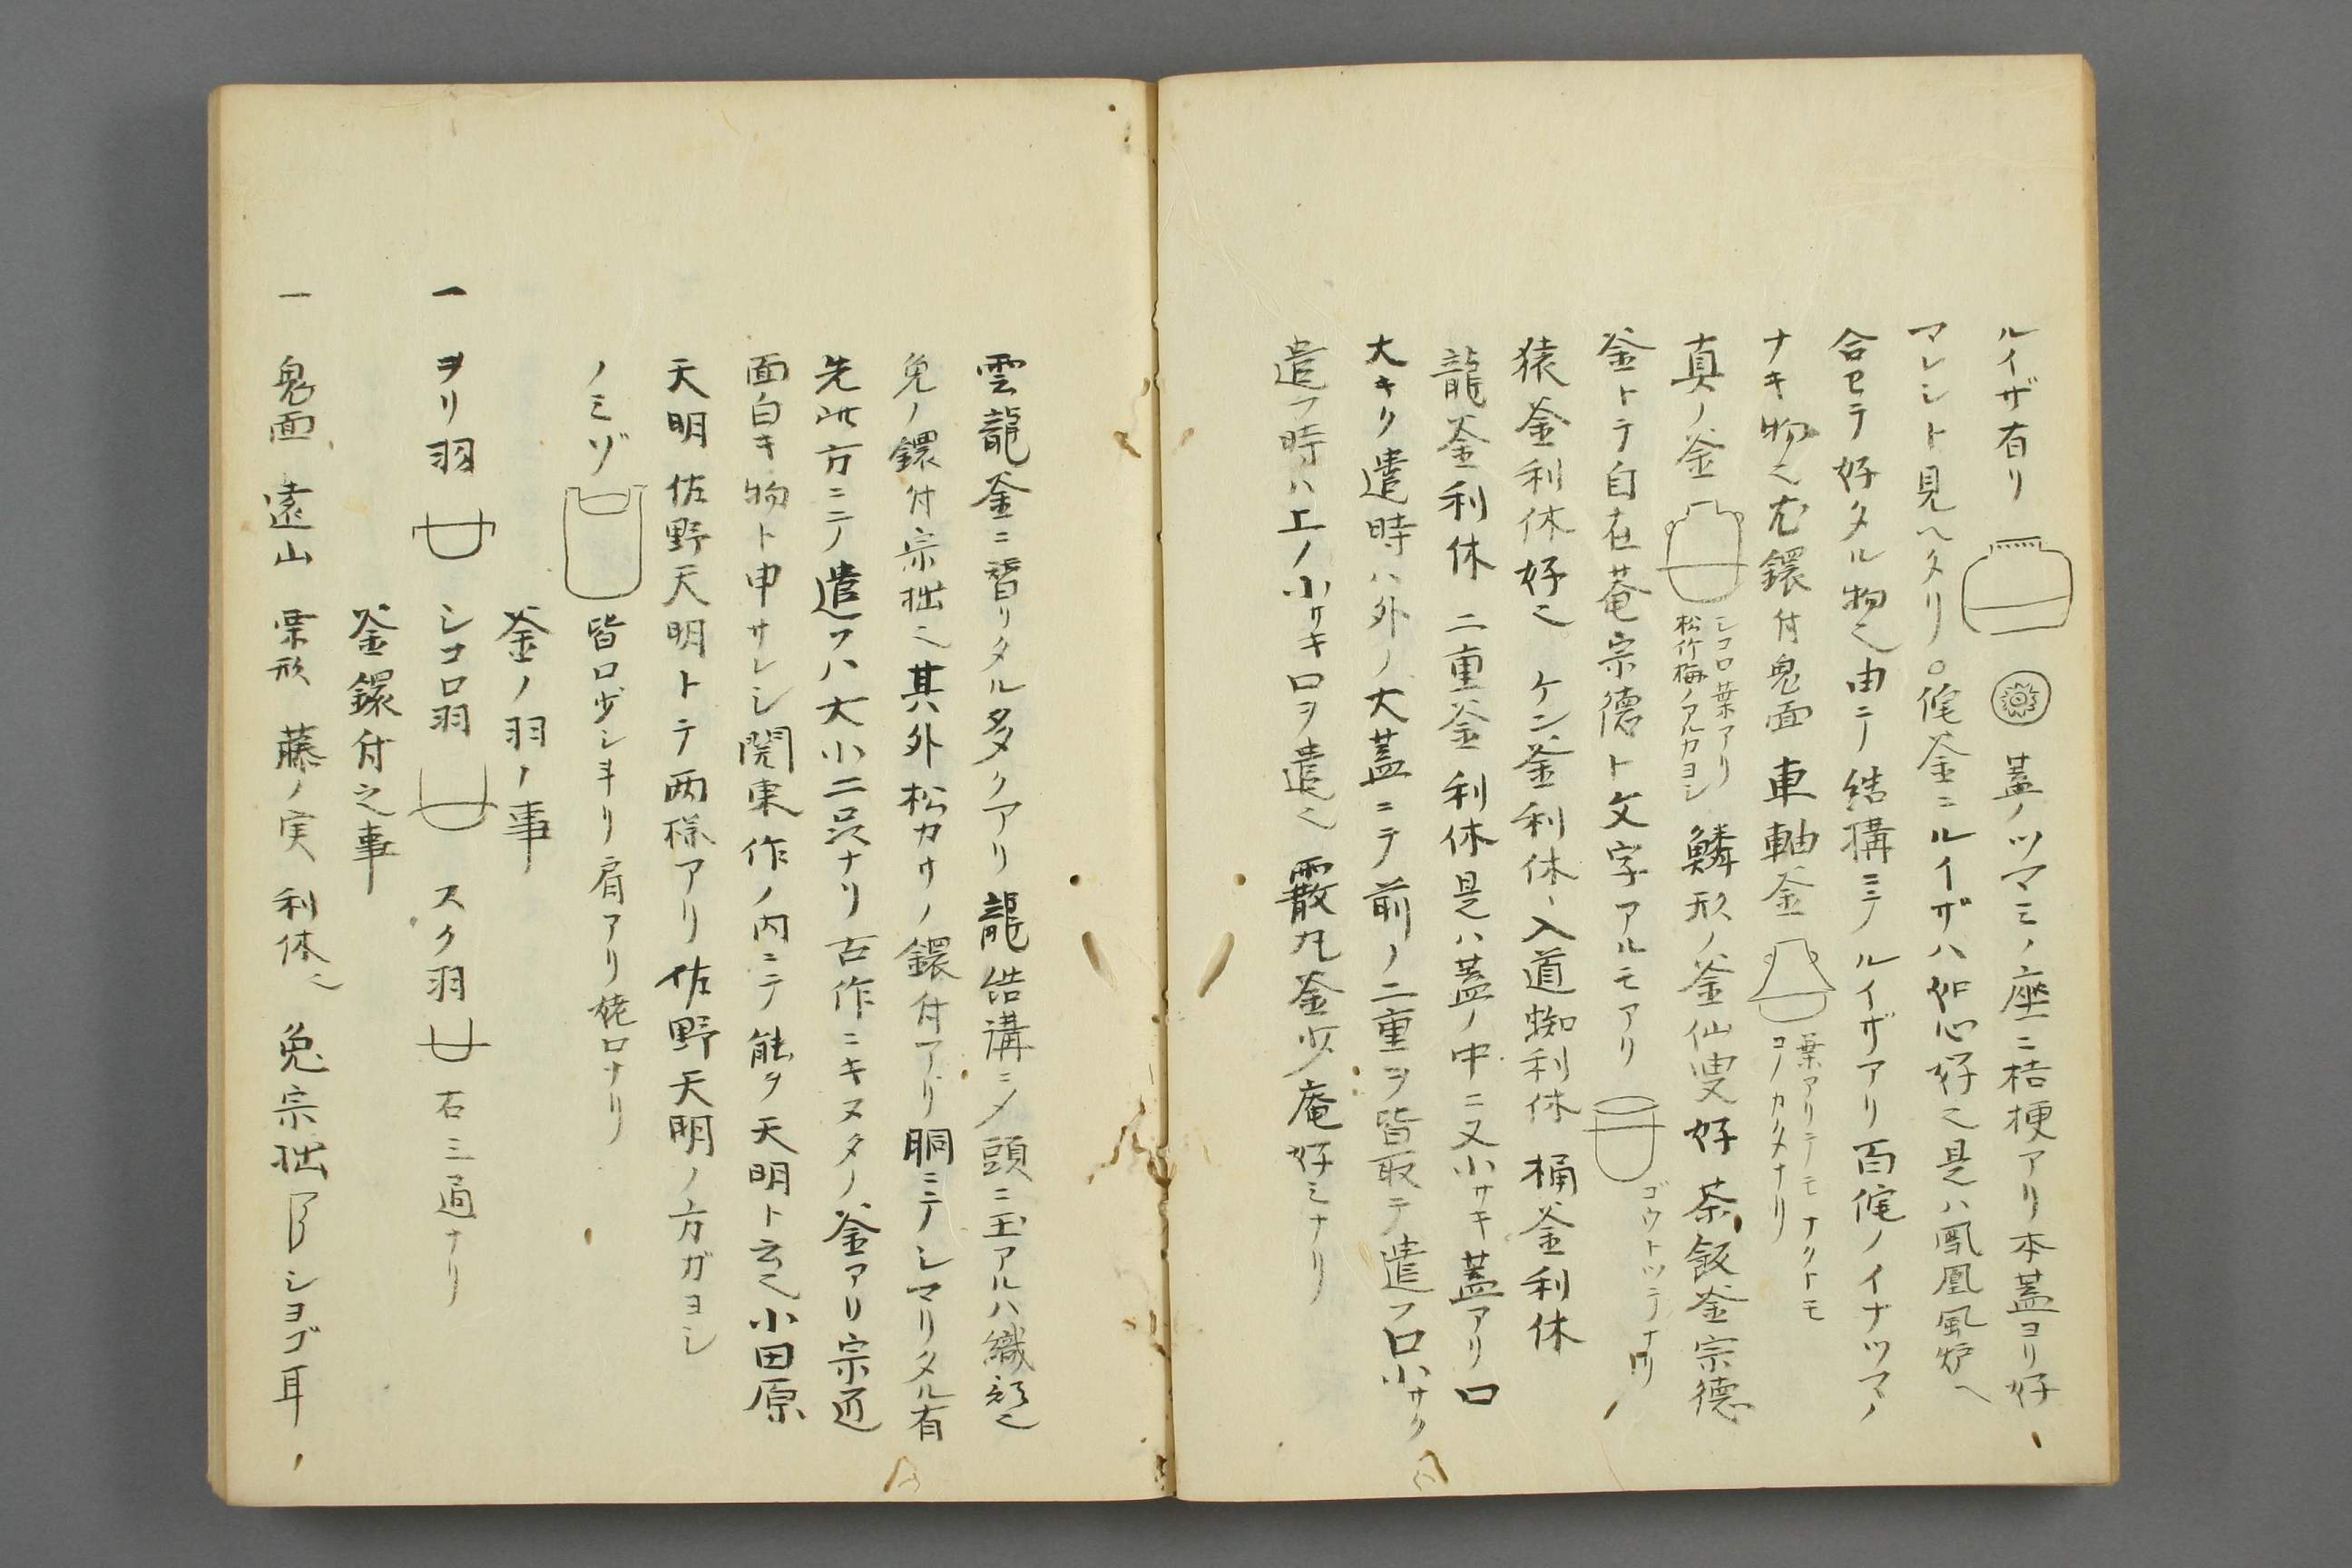 ルイザ有リ 蓋ノツマミノ座ニ桔梗アリ本蓋ヨリ好
マレシト見ヘタリ。侘釜ニルイザハ 好之是ハ鳳凰風炉ヘ
合セテ好タル物之由ニテ結構ニテルイザアリ百侘ノイナツマノ
ナキ物之 鐶付鬼面 車軸釜
葉アリテモナクトモ
コノカタメナリ
真ノ釜
シコロ葉アリ
松竹梅ノアルカヨシ
鱗形ノ釜仙叟好 茶飯釜宗徳
釜トテ自在菴宗徳ト文字アルモアリ
ゴウトツテナリ
猿釜利休好之 ケン釜利休、入道蜘利休 桶釜利休
龍釜利休 二重釜利休是ハ蓋ノ中ニ又小サキ蓋アリ口
大キク遣時ハ外ノ大蓋ニテ前ノ二重ヲ皆取テ遣フ口小サク
遣フ時ハ上ノ小サキ口ヲ遣之 霰丸釜少庵好ミナリ
雲龍釜ニ替リタル多クアリ龍結構ニノ頭ニ玉アルハ織部之
兎ノ鐶付宗拙之其外松カサノ鐶付アリ胴ニテシマリタル有
先此方ニテ遣フハ大小二品ナリ古作ニキヌタノ釜アリ宗匠
面白キ物ト申サレシ関東作ノ内ニテ能ク天明ト云之小田原
天明 佐野天明トテ両様アリ佐野天明ノ方ガヨシ
ノミゾ 皆口少シキリ肩アリ姥口ナリ
釜ノ羽ノ事
一 ヲリ羽 シコロ羽 スク羽 右三通ナリ
釜鐶付之事
一 鬼面 遠山 栗形 藤ノ実 利休之 兎宗拙 シヨゴ耳、